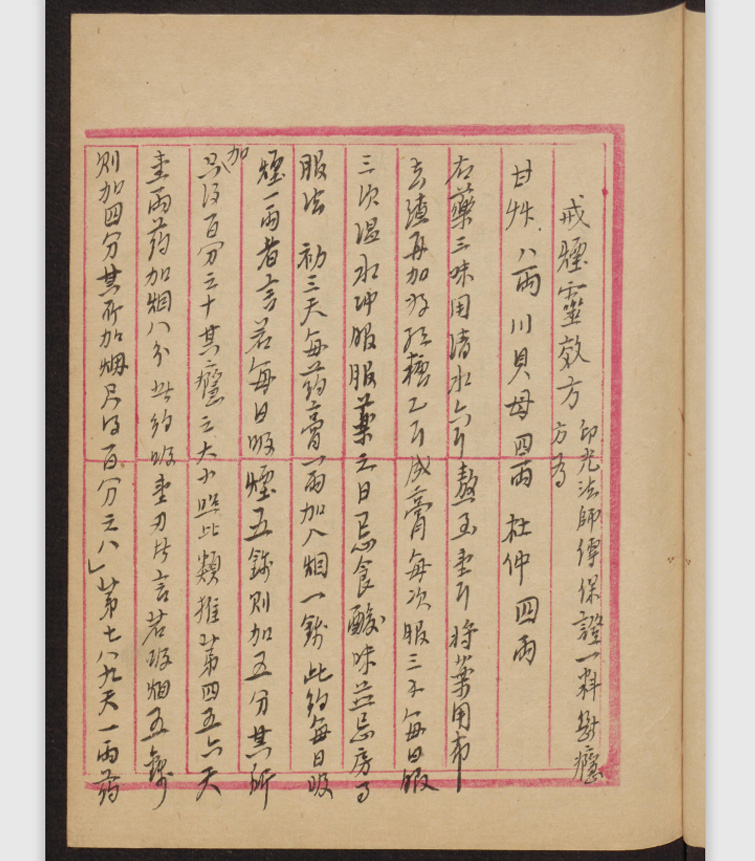 戒煙靈效方 印光法師傳保證一料斷癮
方為
甘艸八兩 川貝母四兩 杜仲四兩
右藥三味用清水六斤熬至壹斤將藥用布
去渣再加好紅糖乙斤成膏每次服三錢每日服
三次溫水冲服服藥之日忌食酸味並忌房事
服法 初三天每药膏一兩加入烟一錢此約每日吸
煙一兩者言若每日吸煙五錢則加五分其所
加只得百分之十其癮之大小照此類推第四五六天
壹兩药加烟八分此約吸壹兩者言若吸烟五錢
則加四分其所加烟只得百分之八」第七八九天一兩药